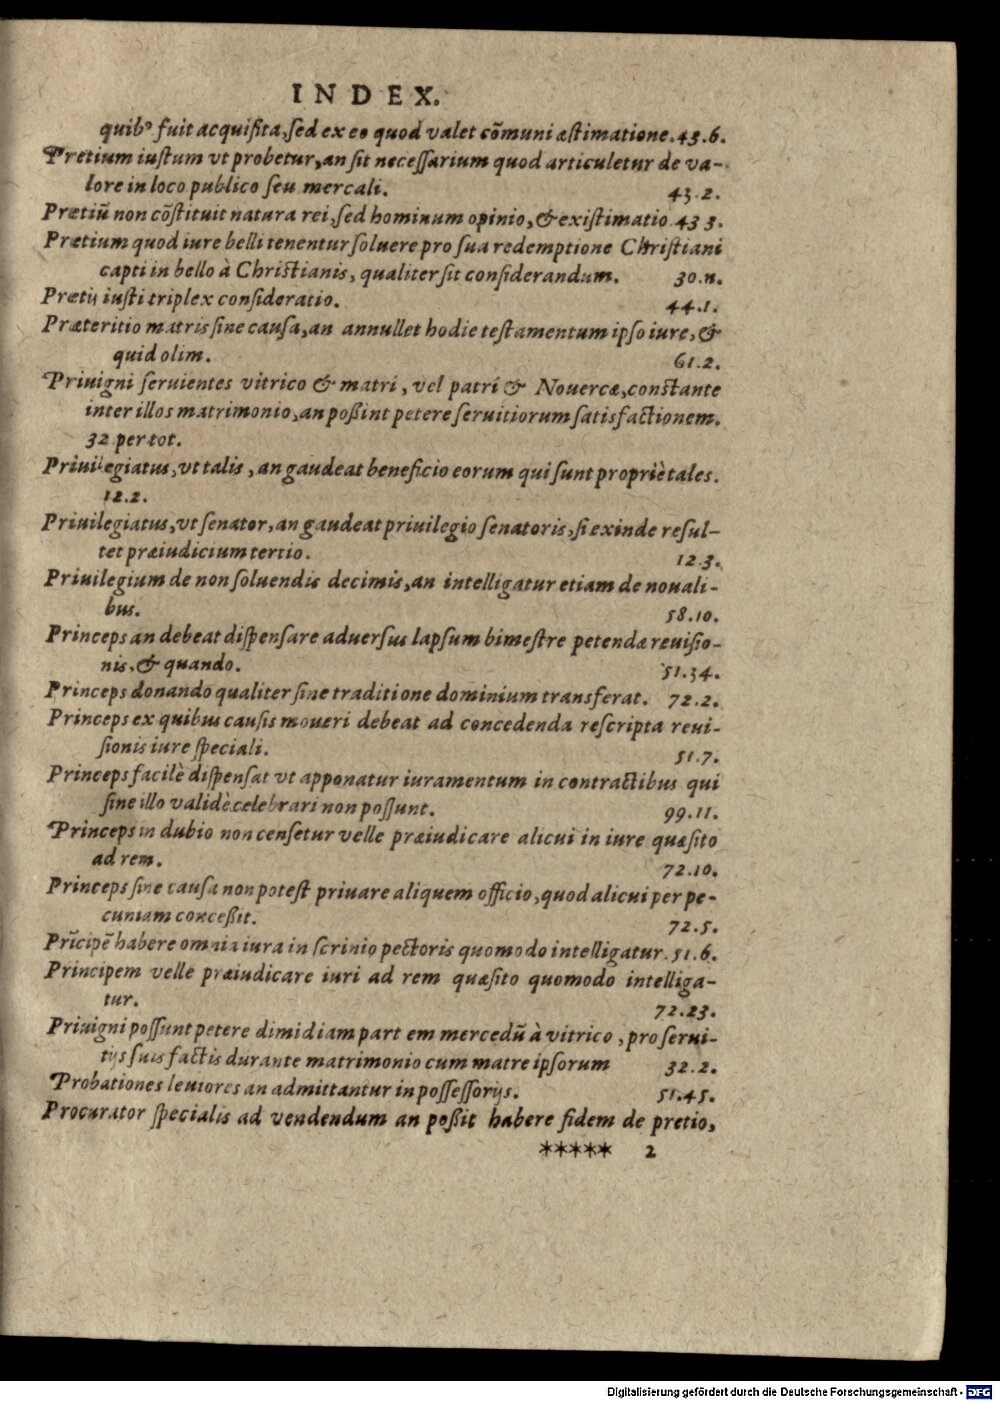 INDEX.
quibꝰ fuit acquiſita, ſed ex eo quod valet cõmuni æſtimatione. 43.6.
Pretium iuſtum vt probetur, an ſit neceſſarium quod articuletur de va-
lore in loco publico ſeu mercali. 43.2.
Prætiũ non cõſtituit natura rei, ſed hominum opinio, & exiſtimatio 43 3.
Prætium quod iure belli tenentur ſoluere pro ſua redemptione Chriſtiani
capti in bello à Chriſtianis, qualiter ſit conſiderandum. 30.n.
Prætij iuſti triplex conſideratio. 44.1.
Præteritio matris ſine cauſa, an annullet hodie teſtamentum ipſo iure, &
quid olim. 61.2.
Priuigni ſeruientes vitrico & matri, vel patri & Nouercæ, conſtante
inter illos matrimonio, an poßint petere ſeruitiorum ſatisfactionem.
32 per tot.
Priuilegiatus, vt talis, an gaudeat beneficio eorum qui ſunt propriè tales.
12.2.
Priuilegiatus, vt ſenator, an gaudeat priuilegio ſenatoris, ſi exinde reſul-
tet præiudicium tertio. 12.3.
Priuilegium de non ſoluendis decimis, an intelligatur etiam de nouali-
bus. 58.10.
Princeps an debeat diſpenſare aduerſus lapſum bimeſtre petendæ reuiſio-
nis, & quando. 51.34.
Princeps donando qualiter ſine traditione dominium transferat. 72.2.
Princeps ex quibus cauſis moueri debeat ad concedenda reſcripta reui-
ſionis iure ſpeciali. 51.7.
Princeps facilè diſpenſat vt apponatur iuramentum in contractibus qui
ſine illo validè celebrari non poſſunt. 99.11.
Princeps in dubio non cenſetur velle præiudicare alicui in iure quæſito
ad rem. 72.10.
Princeps ſine cauſa non poteſt priuare aliquem officio, quod alicui per pe-
cuniam conceßit. 72.5.
Prĩcipẽ habere omnia iura in ſcrinio pectoris quomodo intelligatur. 51.6.
Principem velle præiudicare iuri ad rem quæſito quomodo intelliga-
tur. 72.23.
Priuigni poſſunt petere dimidiam part em mercedũ à vitrico, pro ſerui-
tijs ſuis factis durante matrimonio cum matre ipſorum 32.2.
Probationes leuiores an admittantur in poſſeſſorijs. 51.45.
Procurator ſpecialis ad vendendum an poßit habere fidem de pretio,
***** 2
Digitalisierung gefördert durch die Deutsche Forschungsgemeinschaft - DFG